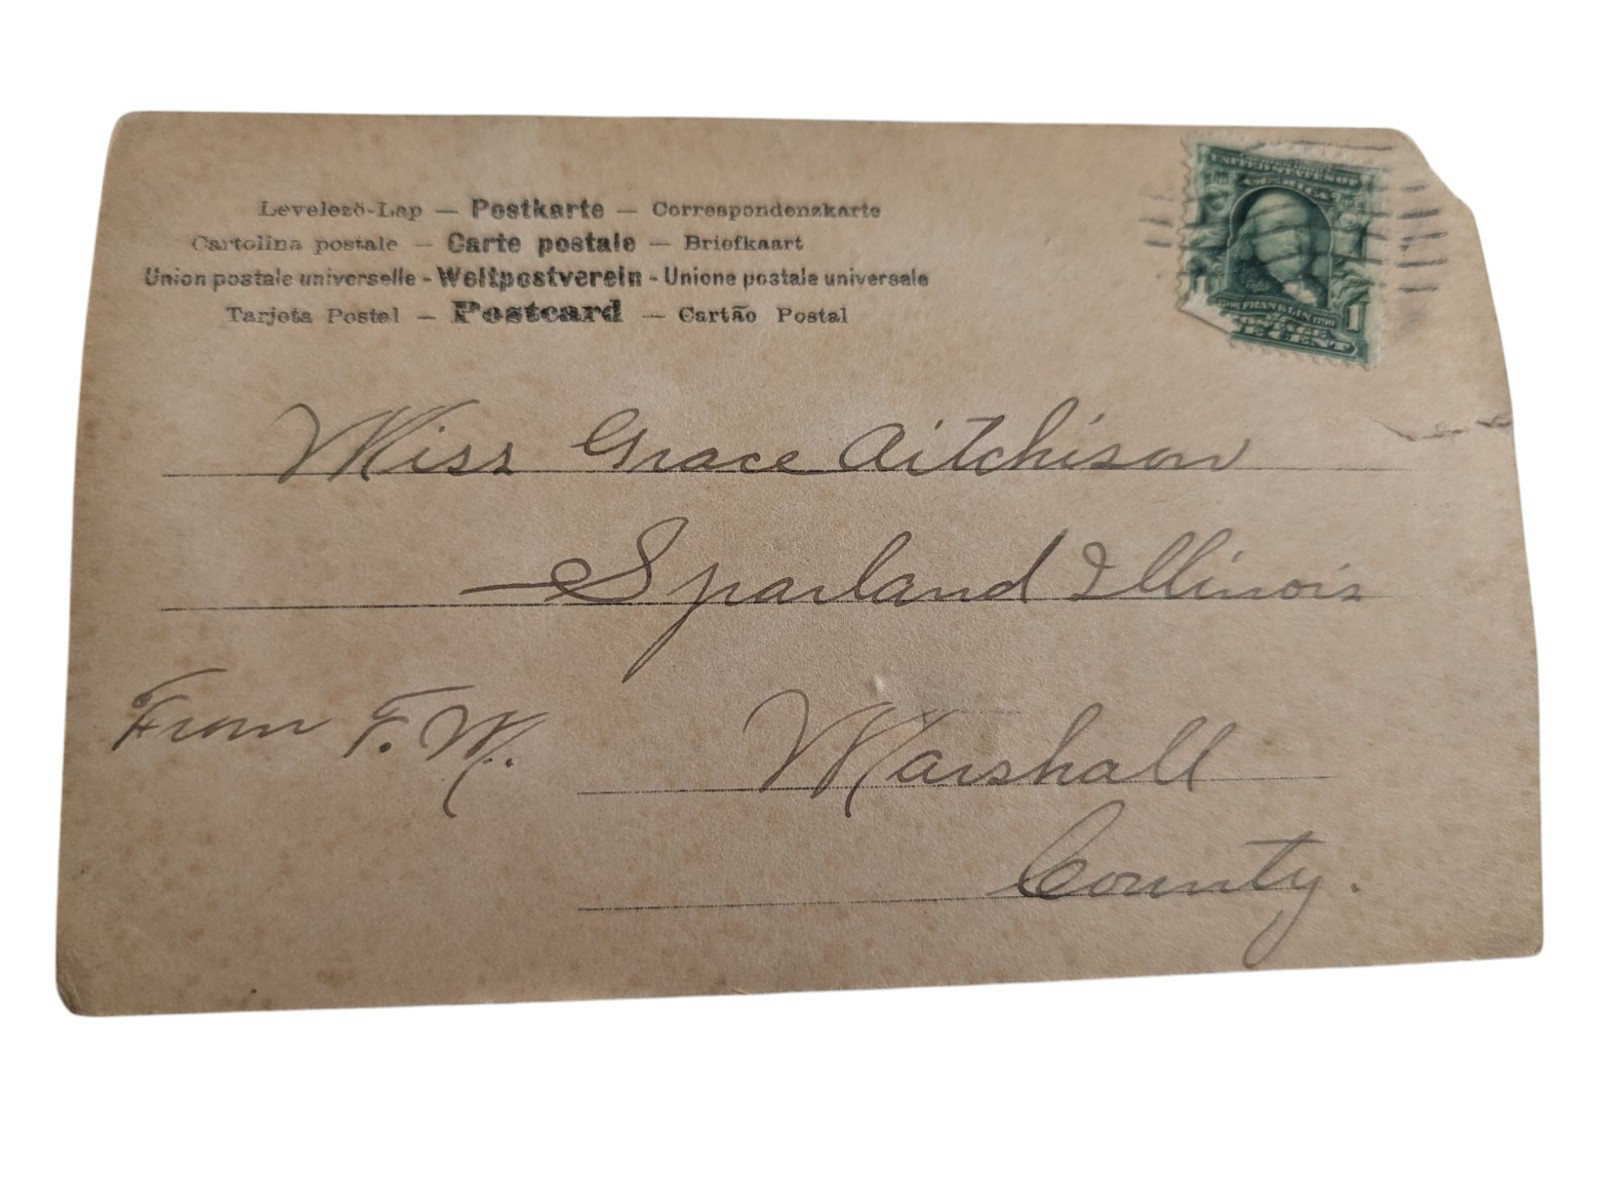 Levelező-Lap — Postkarte — Correspondenzkarte
Cartolina postale — Carte postale — Briefkaart
Union postale universelle - Weltpostverein - Unione postale universale
Tarjeta Postal — Postcard — Cartão Postal
UNITED STATES OF
AMERICA
FRANKLIN 1790
1
CENT
Miss Grace Aitchison
Sparland Illinois
From F. M.
Marshall
County.